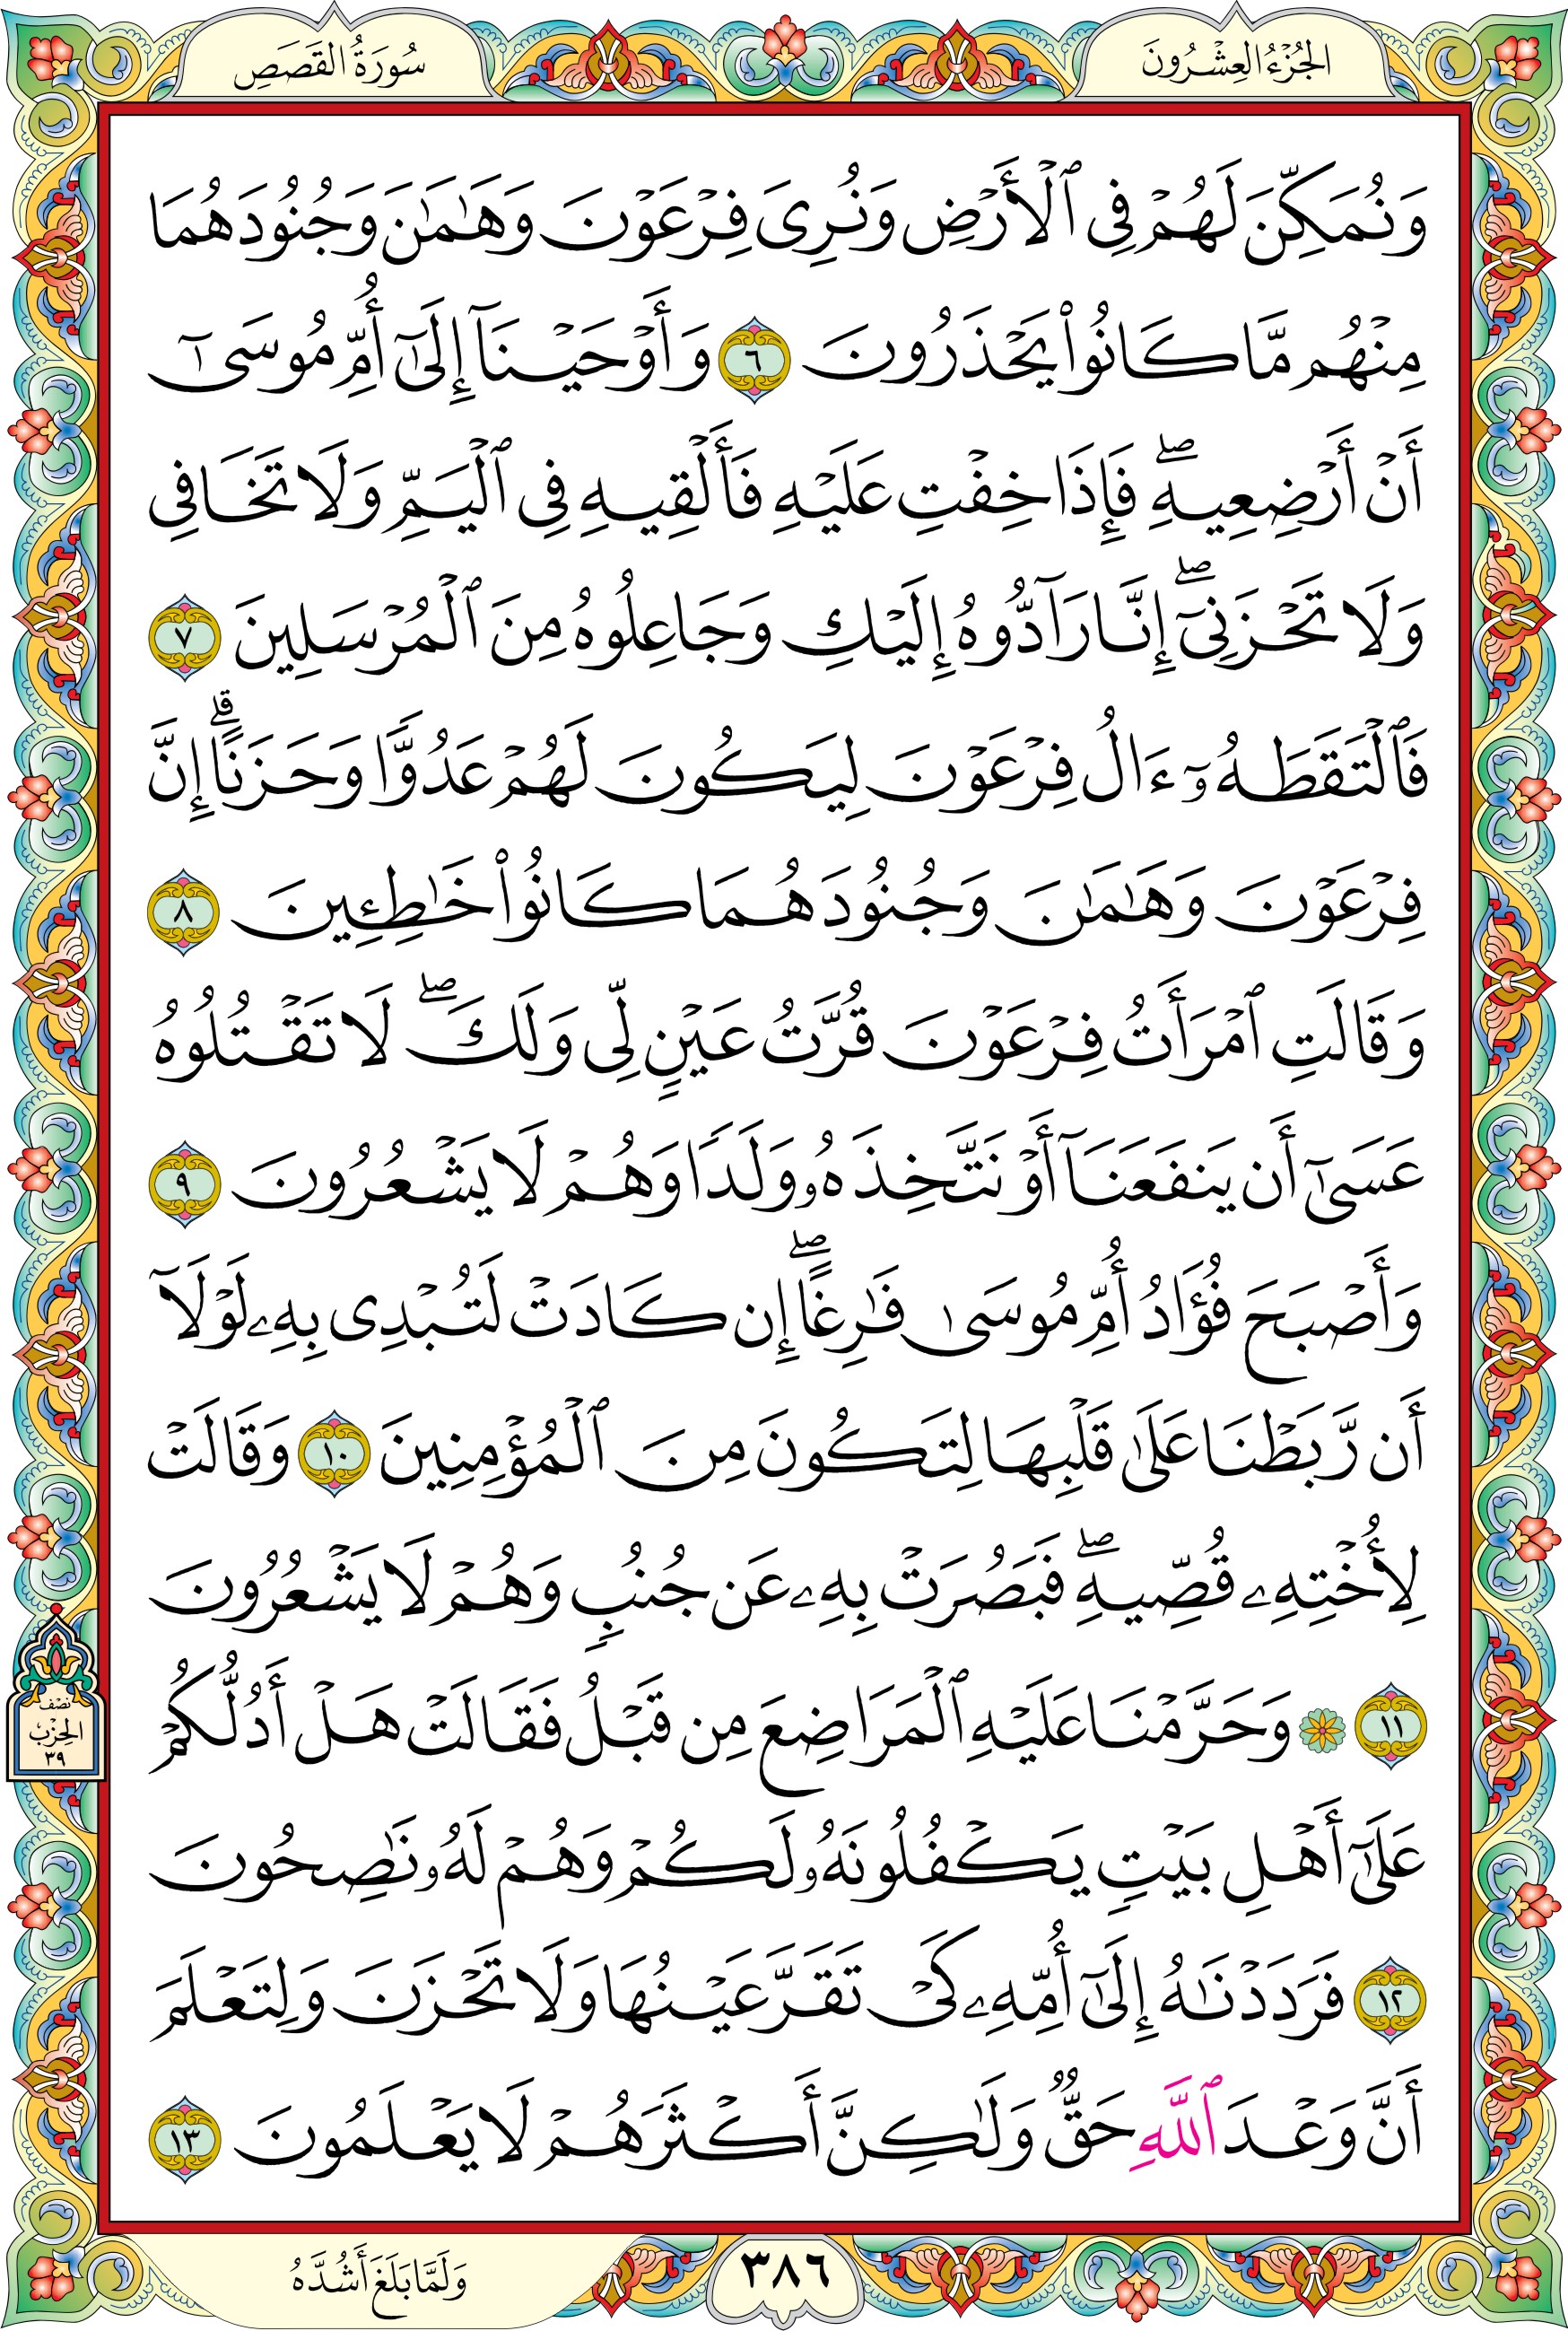 الجُزْءُ العِشْرُونَ
سُورَةُ القَصَصِ
وَنُمَكِّنَ لَهُمۡ فِي ٱلۡأَرۡضِ وَنُرِيَ فِرۡعَوۡنَ وَهَٰمَٰنَ وَجُنُودَهُمَا
مِنۡهُم مَّا كَانُواْ يَحۡذَرُونَ ٦ وَأَوۡحَيۡنَآ إِلَىٰٓ أُمِّ مُوسَىٰٓ
أَنۡ أَرۡضِعِيهِۖ فَإِذَا خِفۡتِ عَلَيۡهِ فَأَلۡقِيهِ فِي ٱلۡيَمِّ وَلَا تَخَافِي
وَلَا تَحۡزَنِيٓۖ إِنَّا رَآدُّوهُ إِلَيۡكِ وَجَاعِلُوهُ مِنَ ٱلۡمُرۡسَلِينَ ٧
فَٱلۡتَقَطَهُۥٓ ءَالُ فِرۡعَوۡنَ لِيَكُونَ لَهُمۡ عَدُوّٗا وَحَزَنًاۗ إِنَّ
فِرۡعَوۡنَ وَهَٰمَٰنَ وَجُنُودَهُمَا كَانُواْ خَٰطِـِٔينَ ٨
وَقَالَتِ ٱمۡرَأَتُ فِرۡعَوۡنَ قُرَّتُ عَيۡنٖ لِّي وَلَكَۖ لَا تَقۡتُلُوهُ
عَسَىٰٓ أَن يَنفَعَنَآ أَوۡ نَتَّخِذَهُۥ وَلَدٗا وَهُمۡ لَا يَشۡعُرُونَ ٩
وَأَصۡبَحَ فُؤَادُ أُمِّ مُوسَىٰ فَٰرِغًاۖ إِن كَادَتۡ لَتُبۡدِي بِهِۦ لَوۡلَآ
أَن رَّبَطۡنَا عَلَىٰ قَلۡبِهَا لِتَكُونَ مِنَ ٱلۡمُؤۡمِنِينَ ١٠ وَقَالَتۡ
لِأُخۡتِهِۦ قُصِّيهِۖ فَبَصُرَتۡ بِهِۦ عَن جُنُبٖ وَهُمۡ لَا يَشۡعُرُونَ
١١ ۞ وَحَرَّمۡنَا عَلَيۡهِ ٱلۡمَرَاضِعَ مِن قَبۡلُ فَقَالَتۡ هَلۡ أَدُلُّكُمۡ
نصف
الحزب
٣٩
عَلَىٰٓ أَهۡلِ بَيۡتٖ يَكۡفُلُونَهُۥ لَكُمۡ وَهُمۡ لَهُۥ نَٰصِحُونَ
١٢ فَرَدَدۡنَٰهُ إِلَىٰٓ أُمِّهِۦ كَيۡ تَقَرَّ عَيۡنُهَا وَلَا تَحۡزَنَ وَلِتَعۡلَمَ
أَنَّ وَعۡدَ ٱللَّهِ حَقّٞ وَلَٰكِنَّ أَكۡثَرَهُمۡ لَا يَعۡلَمُونَ ١٣
٣٨٦
وَلَمَّا بَلَغَ أَشُدَّهُ